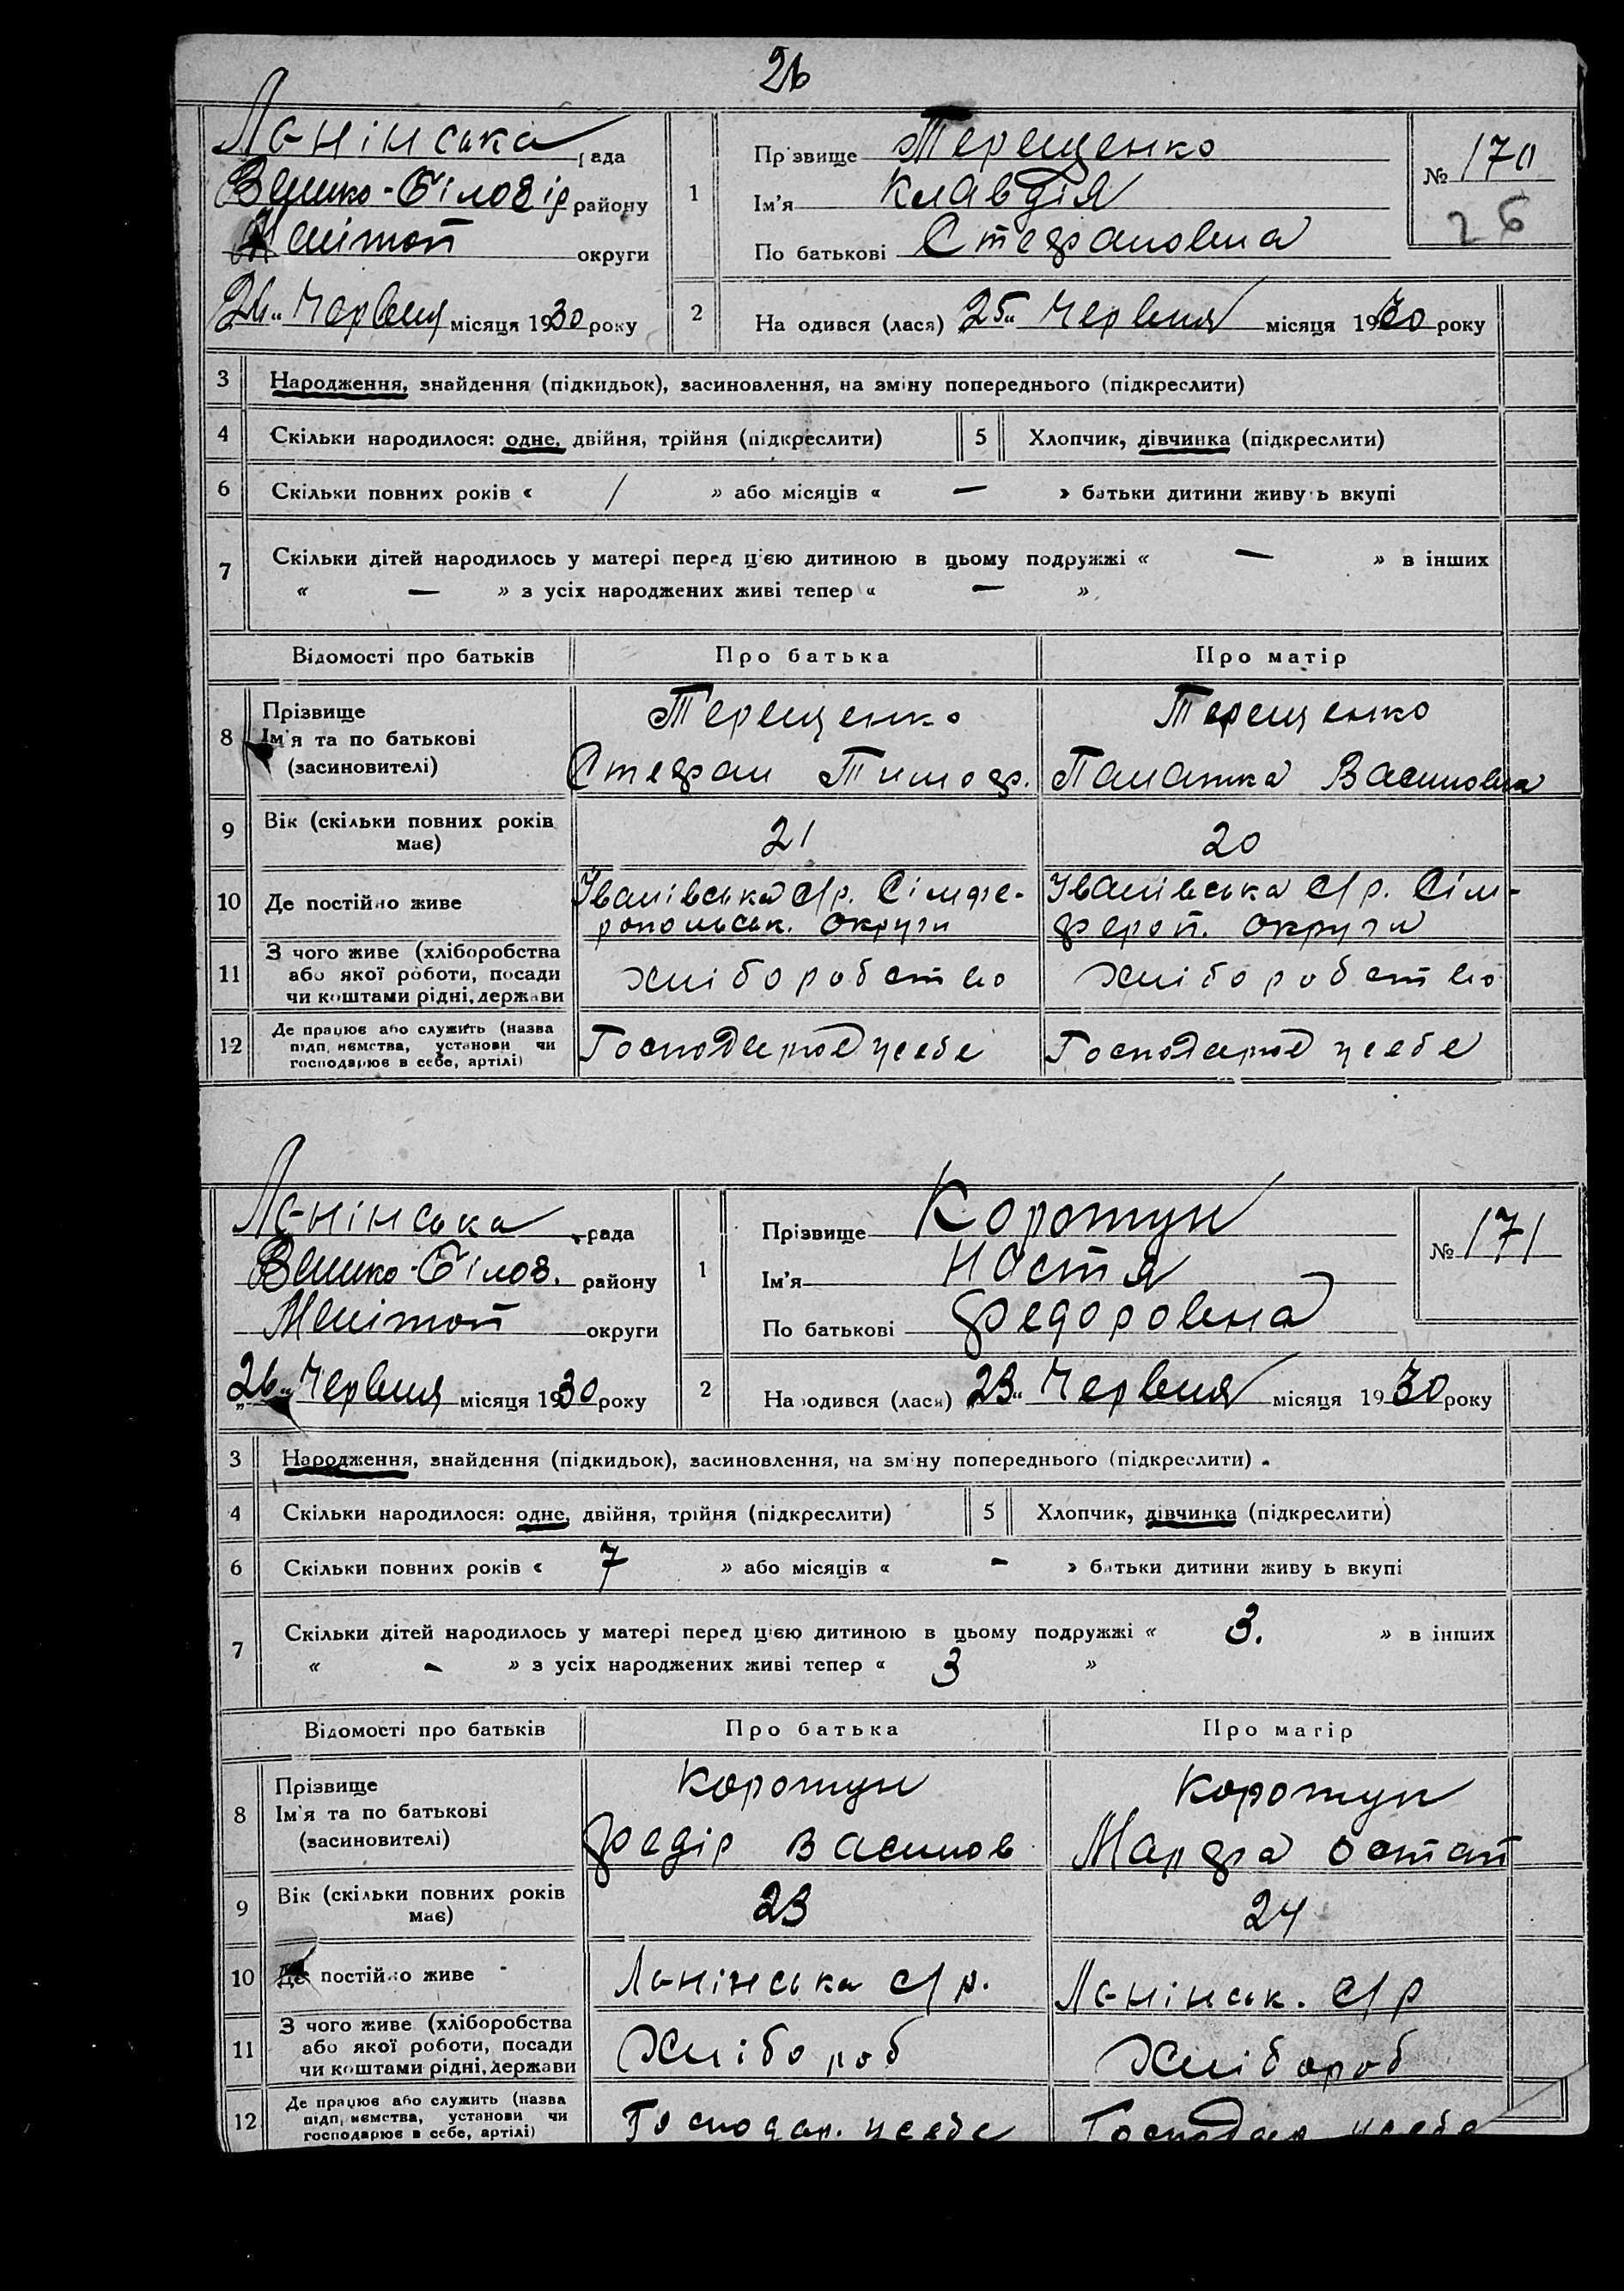 26
Ленінська рада
Велико-Білозір району
Меліт́оп округи
26 „ Червня місяця 1930 року
1
Прізвище Терещенко
Ім'я Клавдія
По батькові Стефановна
№ 170
26
2
Народився (лася) 25 „ Червня місяця 1930 року
3 Народження, знайдення (підкидьок), засиновлення, на зміну попереднього (підкреслити)
4 Скільки народилося: одне, двійня, трійня (підкреслити) 5 Хлопчик, дівчинка (підкреслити)
6 Скільки повних років « 1 » або місяців « — » батьки дитини живуть вкупі
7 Скільки дітей народилось у матері перед цією дитиною в цьому подружжі « — » в інших
« — » з усіх народжених живі тепер « — »
Відомості про батьків Про батька Про матір
8 Прізвище Терещенко Терещенко
Ім'я та по батькові
(засиновителі) Стефан Тимоф. Палажка Василовна
9 Вік (скільки повних років
має) 21 20
10 Де постійно живе Іванівська с/р. Сімфе- Іванівська с/р. Сім-
ропольськ. округи фероп. округи
11 З чого живе (хліборобства
або якої роботи, посади
чи коштами рідні, держави хліборобство хліборобство
12 Де працює або служить (назва
підприємства, установи чи
господарює в себе, артілі) Господарює усебе Господарює усебе
Ленінська рада
Велико-Білоз. району
Мелітоп округи
26 „ Червня місяця 1930 року
1
Прізвище Коротун
Ім'я Настя
По батькові Федоровна
№ 171
2
Народився (лася) 23 „ Червня місяця 1930 року
3 Народження, знайдення (підкидьок), засиновлення, на зміну попереднього (підкреслити)
4 Скільки народилося: одне, двійня, трійня (підкреслити) 5 Хлопчик, дівчинка (підкреслити)
6 Скільки повних років « 7 » або місяців « - » батьки дитини живуть вкупі
7 Скільки дітей народилось у матері перед цією дитиною в цьому подружжі « 3. » в інших
« - » з усіх народжених живі тепер « 3 »
Відомості про батьків Про батька Про матір
8 Прізвище Коротун Коротун
Ім'я та по батькові
(засиновителі) Федір Василов Марфа Остап
9 Вік (скільки повних років
має) 23 24
10 Де постійно живе Ленінська с/р. Ленінськ. с/р
11 З чого живе (хліборобства
або якої роботи, посади
чи коштами рідні, держави Хлібороб Хлібороб
12 Де працює або служить (назва
підприємства, установи чи
господарює в себе, артілі) Господар. усебе Господар усебе